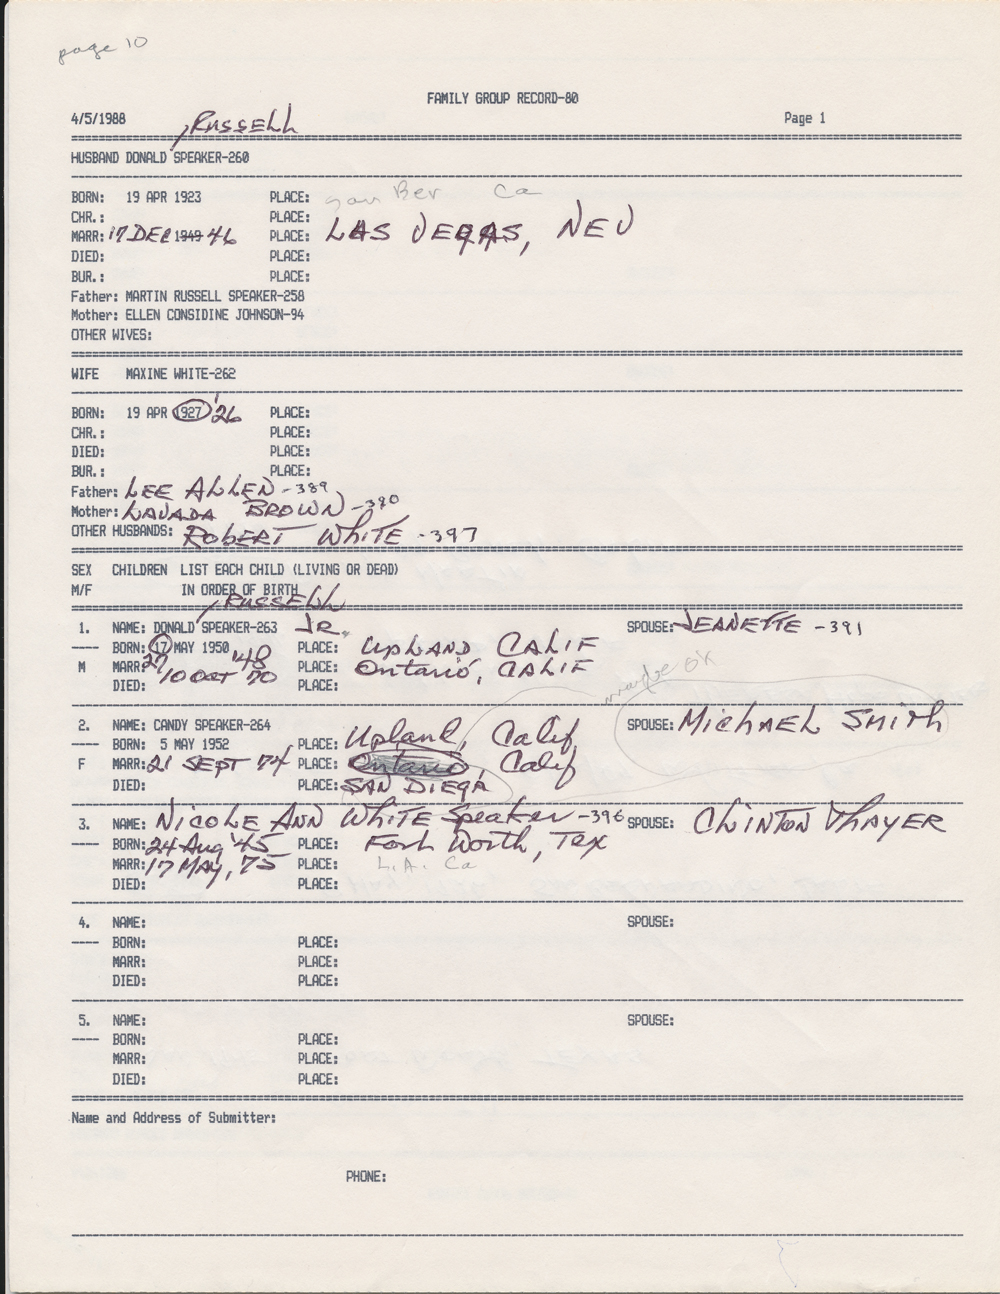 page 10
FAMILY GROUP RECORD-80
4/5/1988 Page 1
, RUSSELL
HUSBAND DONALD SPEAKER-260
BORN: 19 APR 1923 PLACE: San Ber Ca
CHR.: PLACE:
MARR: 17 DEC 1949 46 PLACE: LAS VEGAS, NEV
DIED: PLACE:
BUR.: PLACE:
Father: MARTIN RUSSELL SPEAKER-258
Mother: ELLEN CONSIDINE JOHNSON-94
OTHER WIVES:
WIFE MAXINE WHITE-262
BORN: 19 APR 1927 '26 PLACE:
CHR.: PLACE:
DIED: PLACE:
BUR.: PLACE:
Father: LEE ALLEN -389
Mother: LAVADA BROWN -390
OTHER HUSBANDS: ROBERT WHITE -397
SEX CHILDREN LIST EACH CHILD (LIVING OR DEAD)
M/F IN ORDER OF BIRTH
, RUSSELL
1. NAME: DONALD SPEAKER-263 JR. SPOUSE: JEANETTE -391
---- BORN: 17 MAY 1950 '48 PLACE: UPLAND CALIF
27
M MARR: 10 OCT 70 PLACE: Ontario, CALIF
DIED: PLACE:
maybe ok
2. NAME: CANDY SPEAKER-264 SPOUSE: MICHAEL SMITH
---- BORN: 5 MAY 1952 PLACE: Upland, Calif
F MARR: 21 SEPT 74 PLACE: Ontario, Calif
DIED: PLACE: SAN DIEGA
3. NAME: NICOLE ANN WHITE Speaker -396 SPOUSE: CLINTON THAYER
---- BORN: 24 Aug '45 PLACE: Fort Worth, Tex
MARR: 17 MAY, 75 PLACE: L.A. Ca
DIED: PLACE:
4. NAME: SPOUSE:
---- BORN: PLACE:
MARR: PLACE:
DIED: PLACE:
5. NAME: SPOUSE:
---- BORN: PLACE:
MARR: PLACE:
DIED: PLACE:
Name and Address of Submitter:
PHONE: